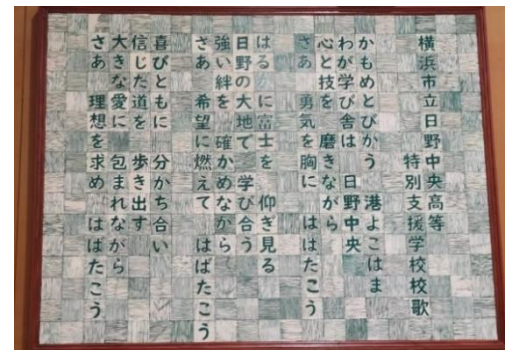 横浜市立日野中央高等
特別支援学校校歌
かもめとびかう　港よこはま
わが学び舎は　日野中央
心と技を　磨きながら
さあ　勇気を胸に　ははたこう
はるかに富士を　仰ぎ見る
日野の大地で　学び合う
強い絆を　確かめながら
さあ　希望に燃えて　はばたこう
喜びともに　分かち合い
信じた道を　歩き出す
大きな愛に　包まれながら
さあ　理想を求め　ははたこう